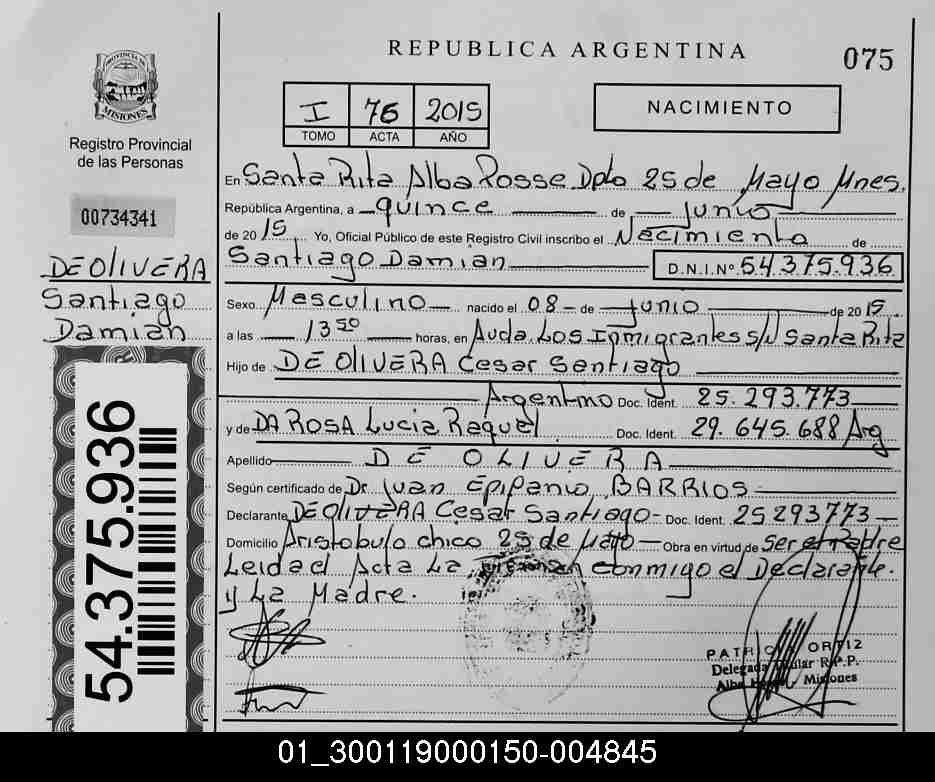 REPUBLICA ARGENTINA
075
PROVINCIA DE
MISIONES
Registro Provincial
de las Personas
00734341
DE OLIVERA
Santiago
Damian
54.375.936
I 76 2015
TOMO ACTA AÑO
NACIMIENTO
En Santa Rita Alba Posse Dpto 25 de Mayo Mnes.
República Argentina, a quince de Junio
de 2015 Yo, Oficial Público de este Registro Civil inscribo el Nacimiento de
Santiago Damian D.N.I.Nº 54.375.936
Sexo Masculino nacido el 08 de Junio de 2015.
a las 13 50 horas, en Avda Los Inmigrantes S/N Santa Rita
Hijo de DE OLIVERA Cesar Santiago
Argentino Doc. Ident. 25.293.773
y de DA ROSA Lucia Raquel Doc. Ident. 29.645.688 Arg
Apellido DE OLIVERA
Según certificado de Dr Juan Epifanio BARRIOS
Declarante DE OLIVERA Cesar Santiago Doc. Ident. 25293773
Domicilio Aristobulo chico 25 de Mayo Obra en virtud de Ser el Padre
Leida el Acta La firman conmigo el Declarante.
y La Madre.
PATRICIA ORTIZ
Delegada Titular R.P.P.
Alba Posse - Misiones
01_300119000150-004845